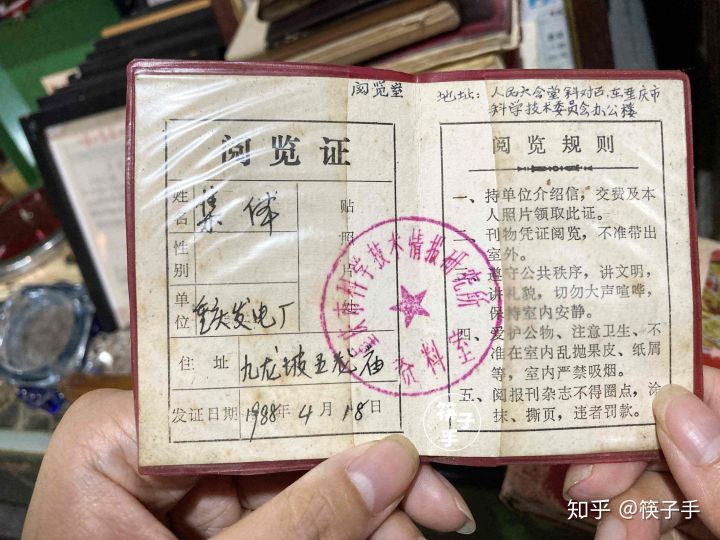 阅览室
阅览证
姓名 集体
性别
单位 重庆发电厂
住址 九龙坡五龙庙
发证日期 1988年4月18日
贴照片
重庆市科学技术情报研究所
资料室
地址：人民大会堂斜对面 重庆市
科学技术委员会办公楼
阅览规则
一、持单位介绍信，交费及本
人照片领取此证。
二、刊物凭证阅览，不准带出
室外。
三、遵守公共秩序，讲文明，
讲礼貌，切勿大声喧哗，
保持室内安静。
四、爱护公物、注意卫生、不
准在室内乱抛果皮、纸屑
等，室内严禁吸烟。
五、阅报刊杂志不得圈点，涂
抹、撕页，违者罚款。
筷子手
知乎 @筷子手